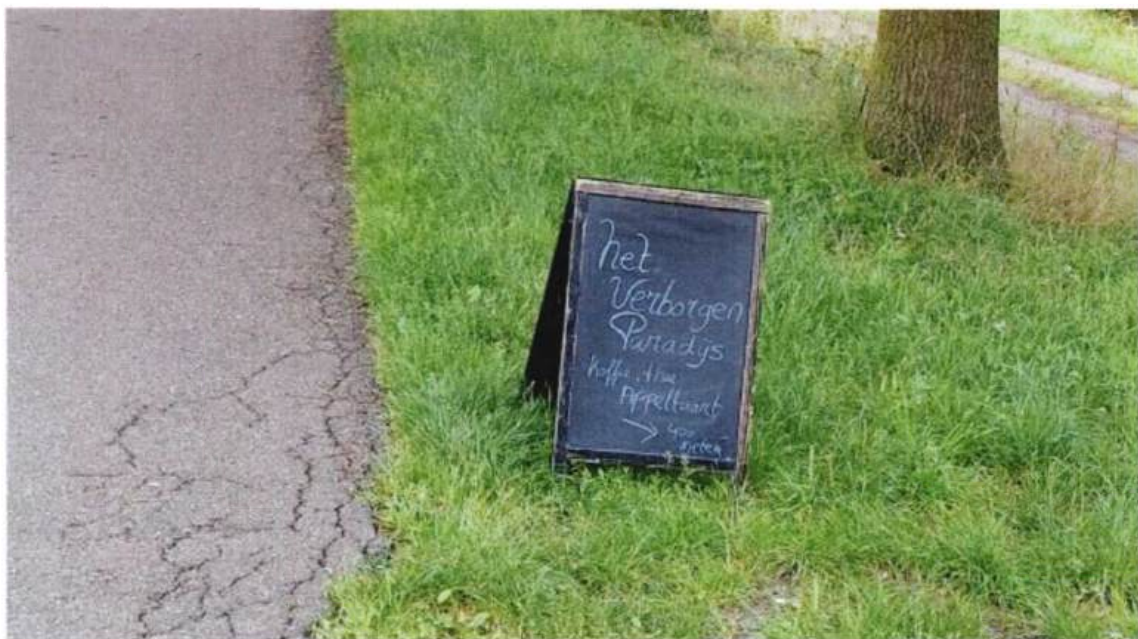 het
Verborgen
Paradijs
Koffie, thee
Appeltaart
→ 400
meter